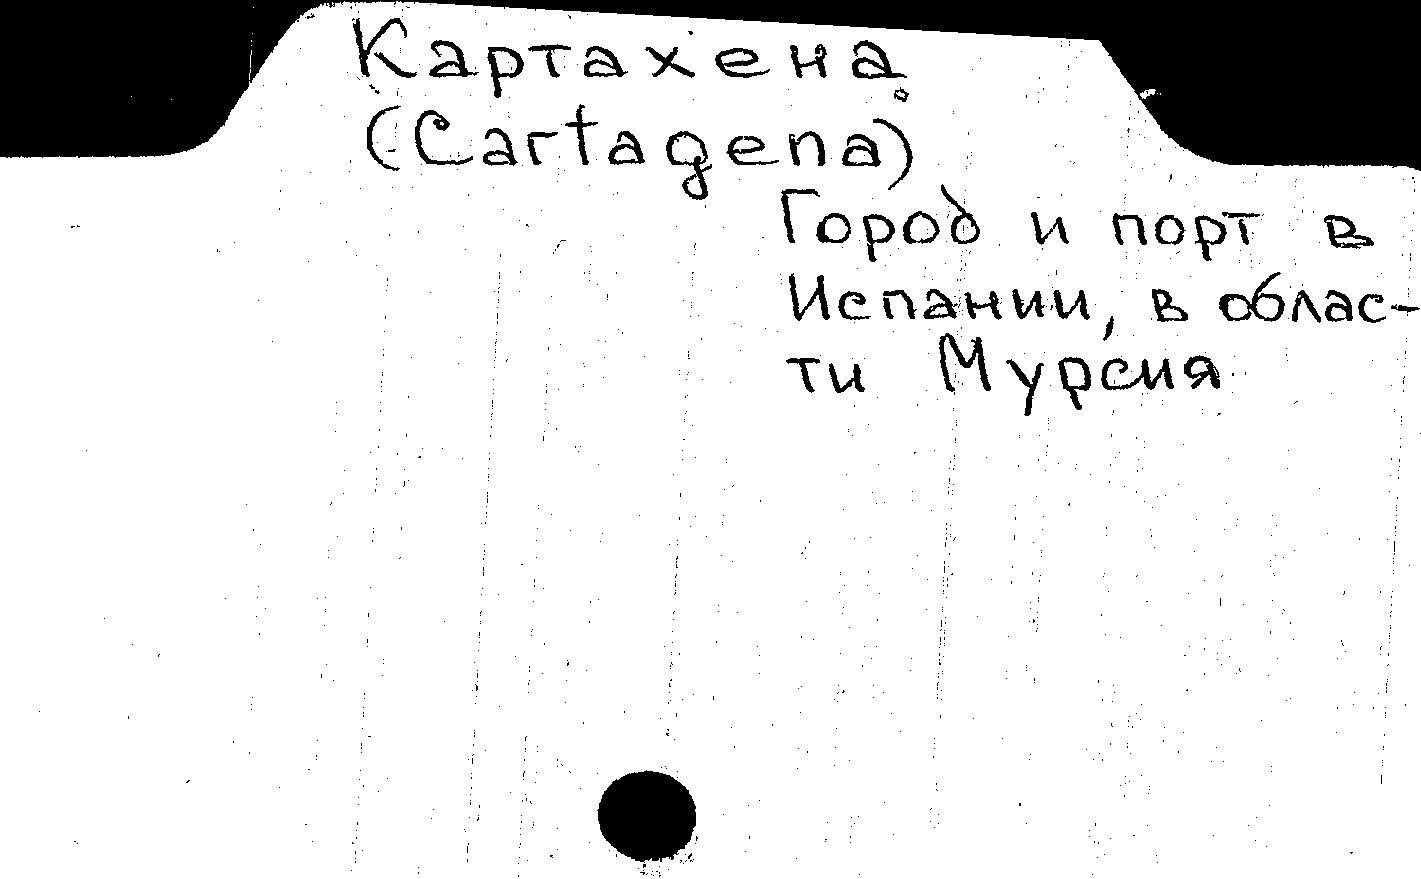 Картахена
(Cartagena)
Город и порт в
Испании, в облас-
ти Мурсия